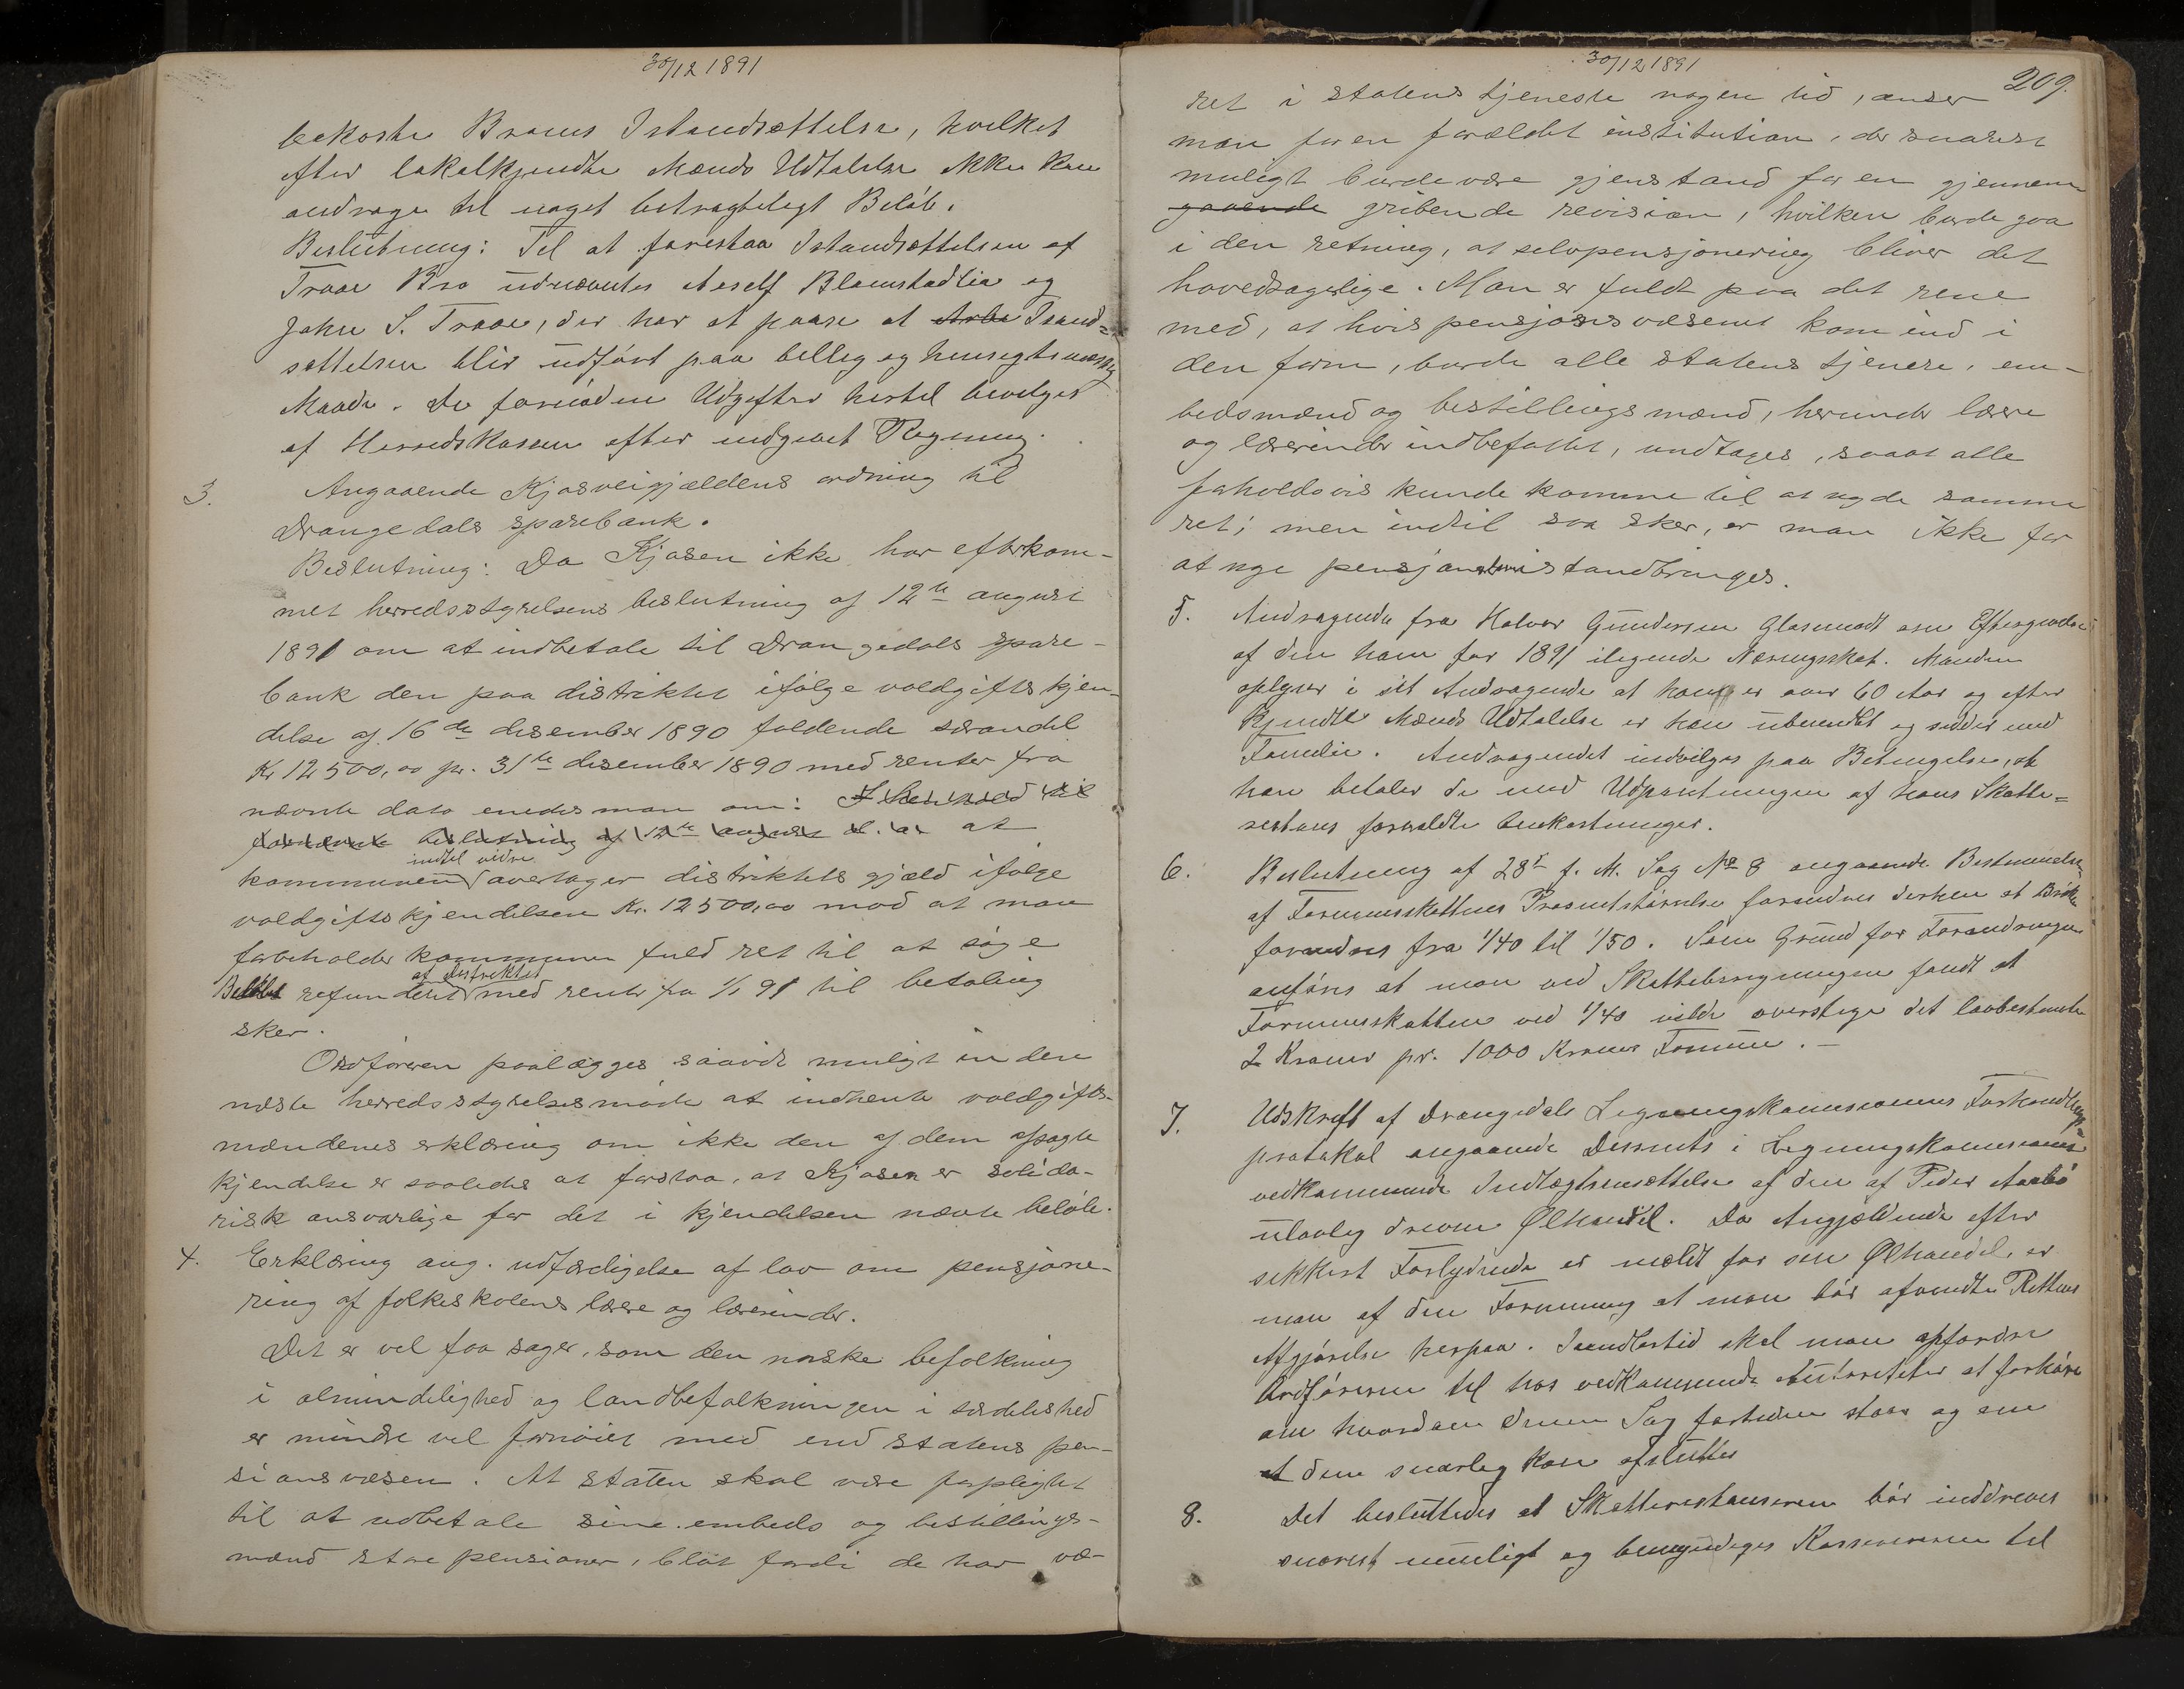 30/12 1891
bekoste Broens Istandsættelse, hvilket
efter lokalkjendte Mænds Udtalelse ikke kan
andrage til noget betragteligt Beløb.
Beslutning: Til at forestaa Istandsættelsen af
Traae Bro udnævntes Aesolf Blomstadlia og
John S. Traae, der har at paase at Arbe Istand=
sættelsen blir udført paa billig og hensigtsmæssig
Maade. De fornødne Udgifter hertil bevilges
af Herredskassen efter indgivet Regning.
3. Angaaende Kjosveigjældens ordning til
Drangedals sparebank.
Beslutning: Da Kjosen ikke har efterkom-
met herredsstyrelsens beslutning af 12te august
1891 om at indbetale til Drangedals spare-
bank den paa distriktet ifølge voldgiftskjen-
delse af 16de desember 1890 faldende særandel
Kr 12500,00 pr. 31te desember 1890 med renter fra
nævnte dato enedes man om: I henhold til
fornævnte beslutning af 12te august d. a. at
indtil videre
kommunen overtager distriktets gjæld ifølge
voldgiftskjendelsen Kr. 12500,00 mod at man
forbeholder kommunen fuld ret til at søge
af distriktet
Beløbet refunderet med rente fra 1/1 91 til betaling
sker.
Ordføreren paalægges saavidt muligt inden
næste herredsstyrelsesmøde at indhente voldgifts-
mændenes erklæring om ikke den af dem afsagte
kjendelse er saaledes at forstaa, at Kjosen er solida-
risk ansvarlige for det i kjendelsen nævnte beløb.
4. Erklæring ang. udfærdigelse af lov om pensjone-
ring af folkeskolens lærere og lærerinder.
Det er vel faa sager, som den norske befolkning
i almindelighed og landbefolkningen i særdeleshed
er mindre vel fornøiet med end statens pen-
sionsvæsen. At staten skal være forpligtet
til at udbetale sine embeds og bestillings-
mænd store pensioner, blot fordi de har væ-
30/12 1891
209.
ret i statens tjeneste nogen tid, anser
man for en forældet institution, der snarest
muligt burde være gjenstand for en gjennem
gaaende gribende revision, hvilken burde gaa
i den retning, at selvpensjonering bliver det
hovedsagelige. Man er fuldt paa det rene
med, at hvis pensjonsvæsenet kom ind i
den form, burde alle statens tjenere, em-
bedsmænd og bestillingsmænd, herunder lærere
og lærerinder indbefattet, undtages, saaat alle
forholdsvis kunde komme til at nyde samme
ret; men indtil saa sker, er man ikke for
at nye pensjoner istandbringes.
5. Andragende fra Halvor Gundersen Glasemodt om Eftergivelse
af den ham for 1891 ilignede Næringsskat. Manden
oplyser i sit Andragende at han er over 60 Aar og efter
kjendte Mænds Udtalelse er han ubemidlet og sidder med
Familie. Andragendet indvilges paa Betingelse, at
han betaler de med Udpantningen af hans Skatte=
restans forvoldte Omkostninger.
6. Beslutning af 28de f. M. Sag No 8 angaaende Bestemmelse
af Formuesskattens Prosentstørrelse forandres derhen at Brøken
forandres fra 1/40 til 1/50. Som Grund for Forandringen
anføres at man ved Skatteberegningen fandt at
Formuesskatten ved 1/40 vilde overstige det lovbestemte
2 Kroner pr. 1000 Kroner Formue. –
7. Udskrift af Drangedals Ligningskommissions Forhandlings=
protokol angaaende Dissents i Ligningskommissionen
vedkommende Indtægtsansættelse af den af Peder Aasbø
ulovlig drevne Ølhandel. Da Angjældende efter
sikkert Forlydende er meldt for sin Ølhandel, er
man af den Formening at man bør afvente Rettens
Afgjørelse herpaa. Imidlertid skal man opfordre
Ordføreren til hos vedkommende Autoriteter at forhøre
om hvordan denne Sag fortiden staar og om
at den snarlig kan afsluttes
8. Det besluttedes at Skatterestanserne bør inddreves
snarest muligt og bemyndiges Kassereren til